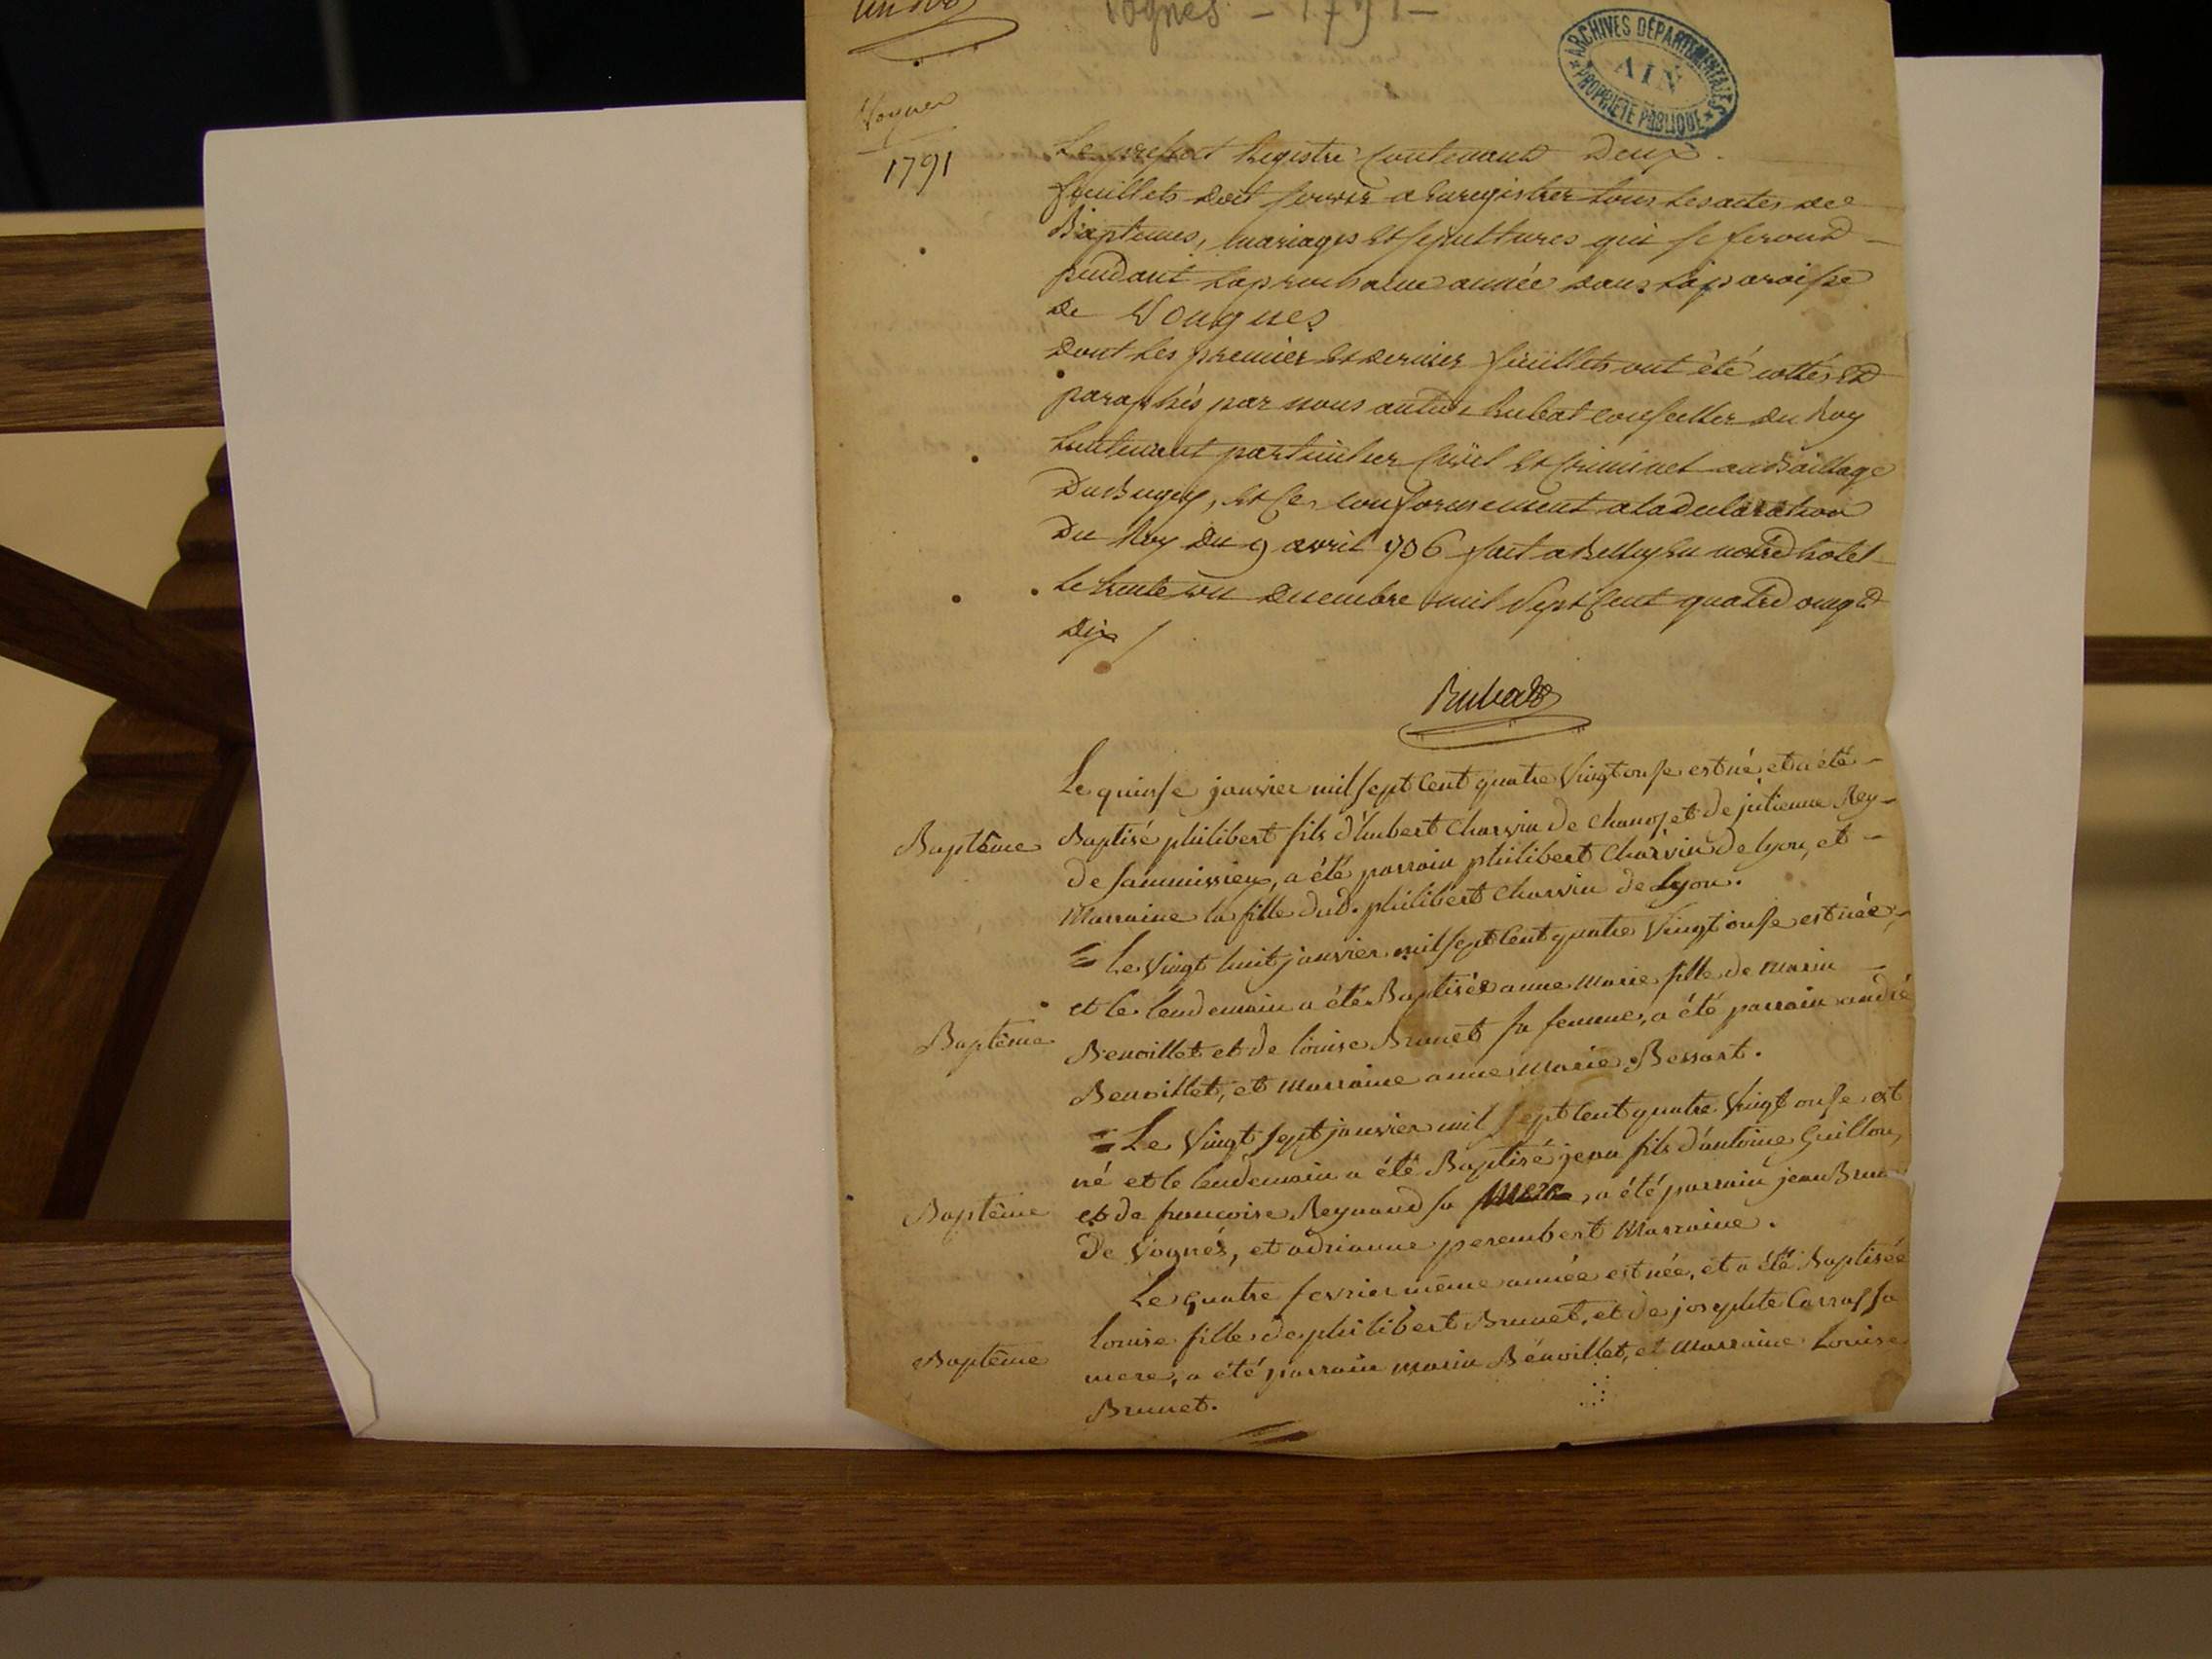 Vognes - 1791 -
ARCHIVES DÉPARTEMENTALES
AIN
PROPRIÉTÉ PUBLIQUE
1791
Le present Registre Contenant Deux
feuillets doit servir a Enregistrer tous les actes de
Baptemes, mariages et sepultures qui se feront
pendant la prochaine année dans la paroisse
de Vougnes
dont les premier et dernier feuillets ont été cottés et
paraphés par nous Rubat conseiller du Roy
Lieutenant particulier Civil et Criminel au Bailliage
Du Bugey, et ce conformement a la declaration
Du Roy du 9 avril 1736 fait a Belley en notre hotel
le trente un decembre mil sept cent quatre vingt
dix /
Rubat
Le quinse janvier mil sept cent quatre vingt onse est né et a été
Baptême
Baptisé philibert fils d'hubert Charvin de et de julienne Rey
de, a été parrain philibert Charvin de lyon, et
Marraine la fille dud. philibert Charvin de Lyon.
= Le vingt huit janvier mil sept cent quatre vingt onse est née,
et le lendemain a été Baptisée anne marie fille de marin
Baptême
Benoillet et de louise Brunet sa femme, a été parrain andré
Benoillet, et marraine anne marie Bessart.
= Le vingt sept janvier mil sept cent quatre vingt onse est
né et le lendemain a été Baptisé jean fils d'antoine Guillon,
Baptême
et de francoise Reynaud sa, a été parrain jean
de Vognes, et adrianne perembert Marraine.
Le quatre fevrier même année est née, et a été Baptisée
Baptême
louise fille de philibert Brunet, et de josephte Carras sa
mere, a été parrain marin Bénoillet, et marraine Louise
Brunet.